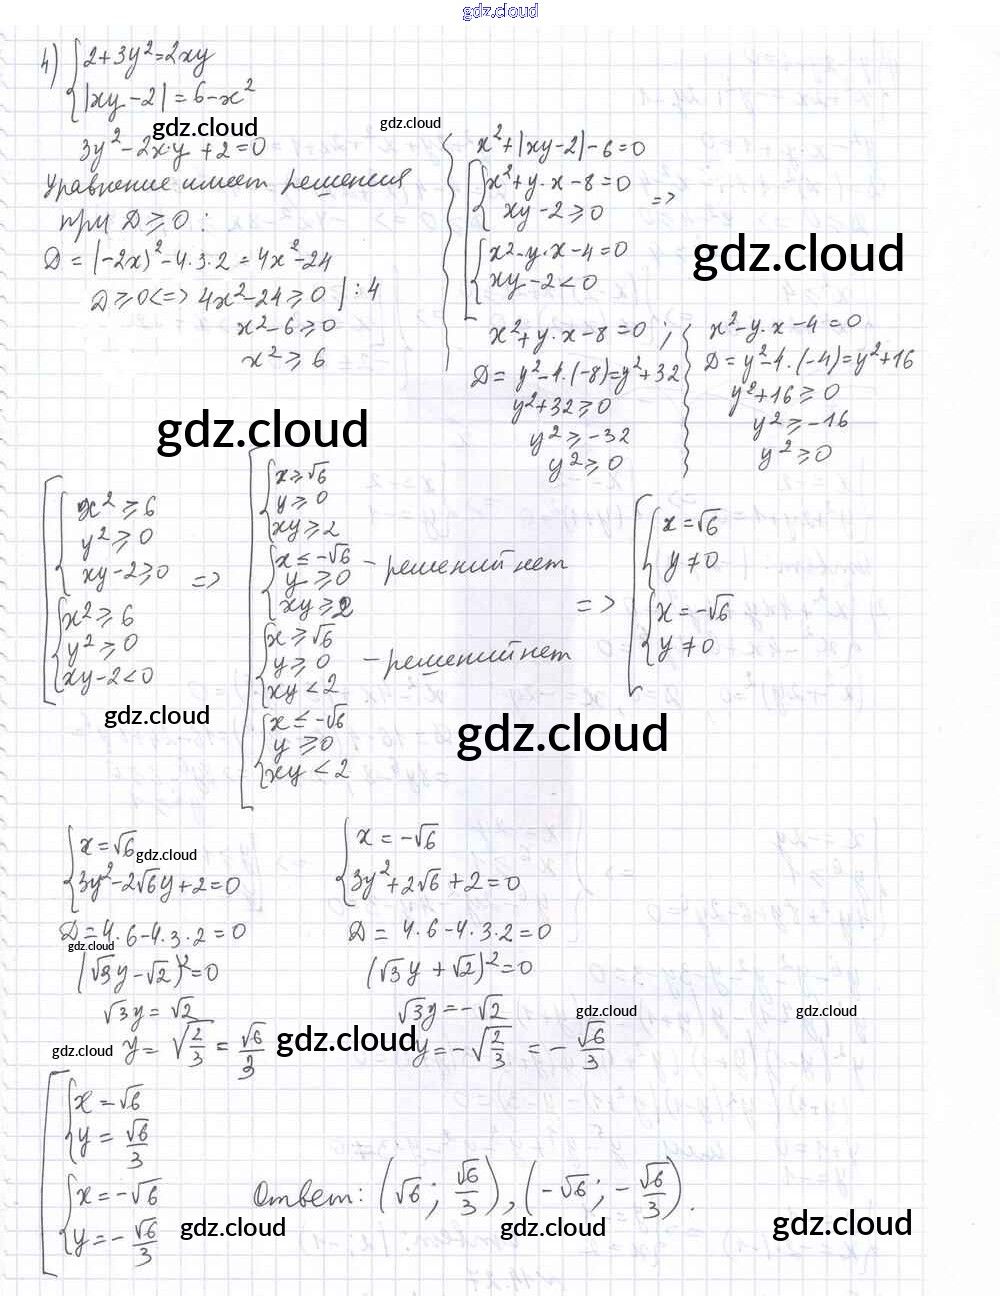 gdz.cloud
4) { 2+3y²=2xy
|xy-2|=6-x²
gdz.cloud
gdz.cloud
3y²-2x·y+2=0
Уравнение имеет решения
при D≥0:
D=(-2x)²-4·3·2=4x²-24
D≥0<=> 4x²-24≥0 |:4
x²-6≥0
x²≥6
{ x²+|xy-2|-6=0
[ { x²+y·x-8=0
xy-2≥0 =>
{ x²-y·x-4=0
xy-2<0
gdz.cloud
x²+y·x-8=0;
D=y²-4·(-8)=y²+32
y²+32≥0
y²≥-32
y²≥0
{ x²-y·x-4=0
D=y²-4·(-4)=y²+16
y²+16≥0
y²≥-16
y²≥0
gdz.cloud
[ { x²≥6
y²≥0
xy-2≥0 =>
{ x²≥6
y²≥0
xy-2<0
gdz.cloud
[ { x≥√6
y≥0
xy≥2
{ x≤-√6 - решений нет
y≥0
xy≥2
{ x≥√6
y≥0 - решений нет
xy<2
{ x≤-√6
y≥0
xy<2
=> [ { x=√6
y≠0
{ x=-√6
y≠0
gdz.cloud
{ x=√6
gdz.cloud
3y²-2√6y+2=0
D=4·6-4·3·2=0
gdz.cloud
(√3y-√2)²=0
√3y=√2
gdz.cloud
y=√2/3=√6/3
gdz.cloud
{ x=-√6
3y²+2√6+2=0
D=4·6-4·3·2=0
(√3y+√2)²=0
√3y=-√2
gdz.cloud
gdz.cloud
y=-√2/3=-√6/3
[ { x=√6
y=√6/3
{ x=-√6
y=-√6/3
Ответ: (√6; √6/3), (-√6; -√6/3).
gdz.cloud
gdz.cloud
gdz.cloud